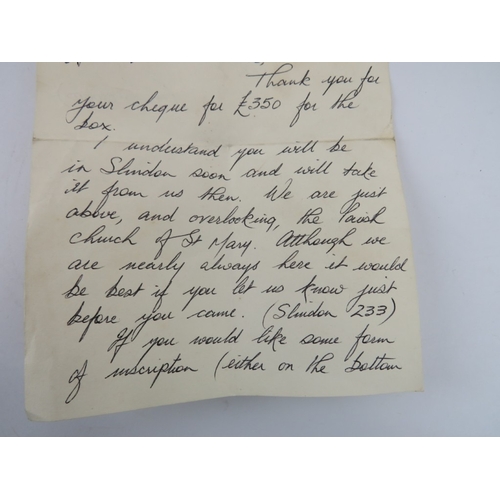 Thank you for
your cheque for £350 for the
box.
I understand you will be
in Slindon soon and will take
it from us then. We are just
above, and overlooking, the Parish
church of St Mary. Although we
are nearly always here it would
be best if you let us know just
before you came. (Slindon 233)
If you would like some form
of inscription (either on the bottom